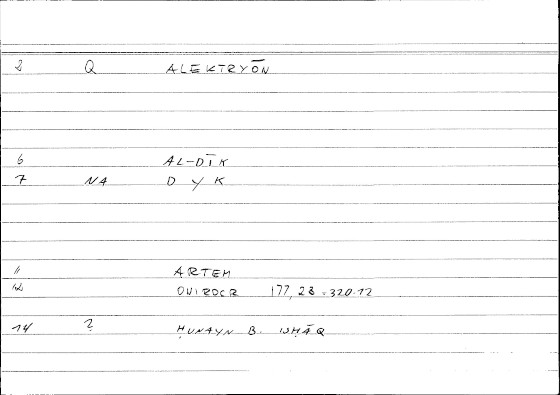 2 Q ALEKTRYŌN
6 AL-DĪK
7 NA D Y K
11 ARTEM
12 ONIROCR 177, 23 = 320.12
14 ? ḤUNAYN B. ISḤĀQ